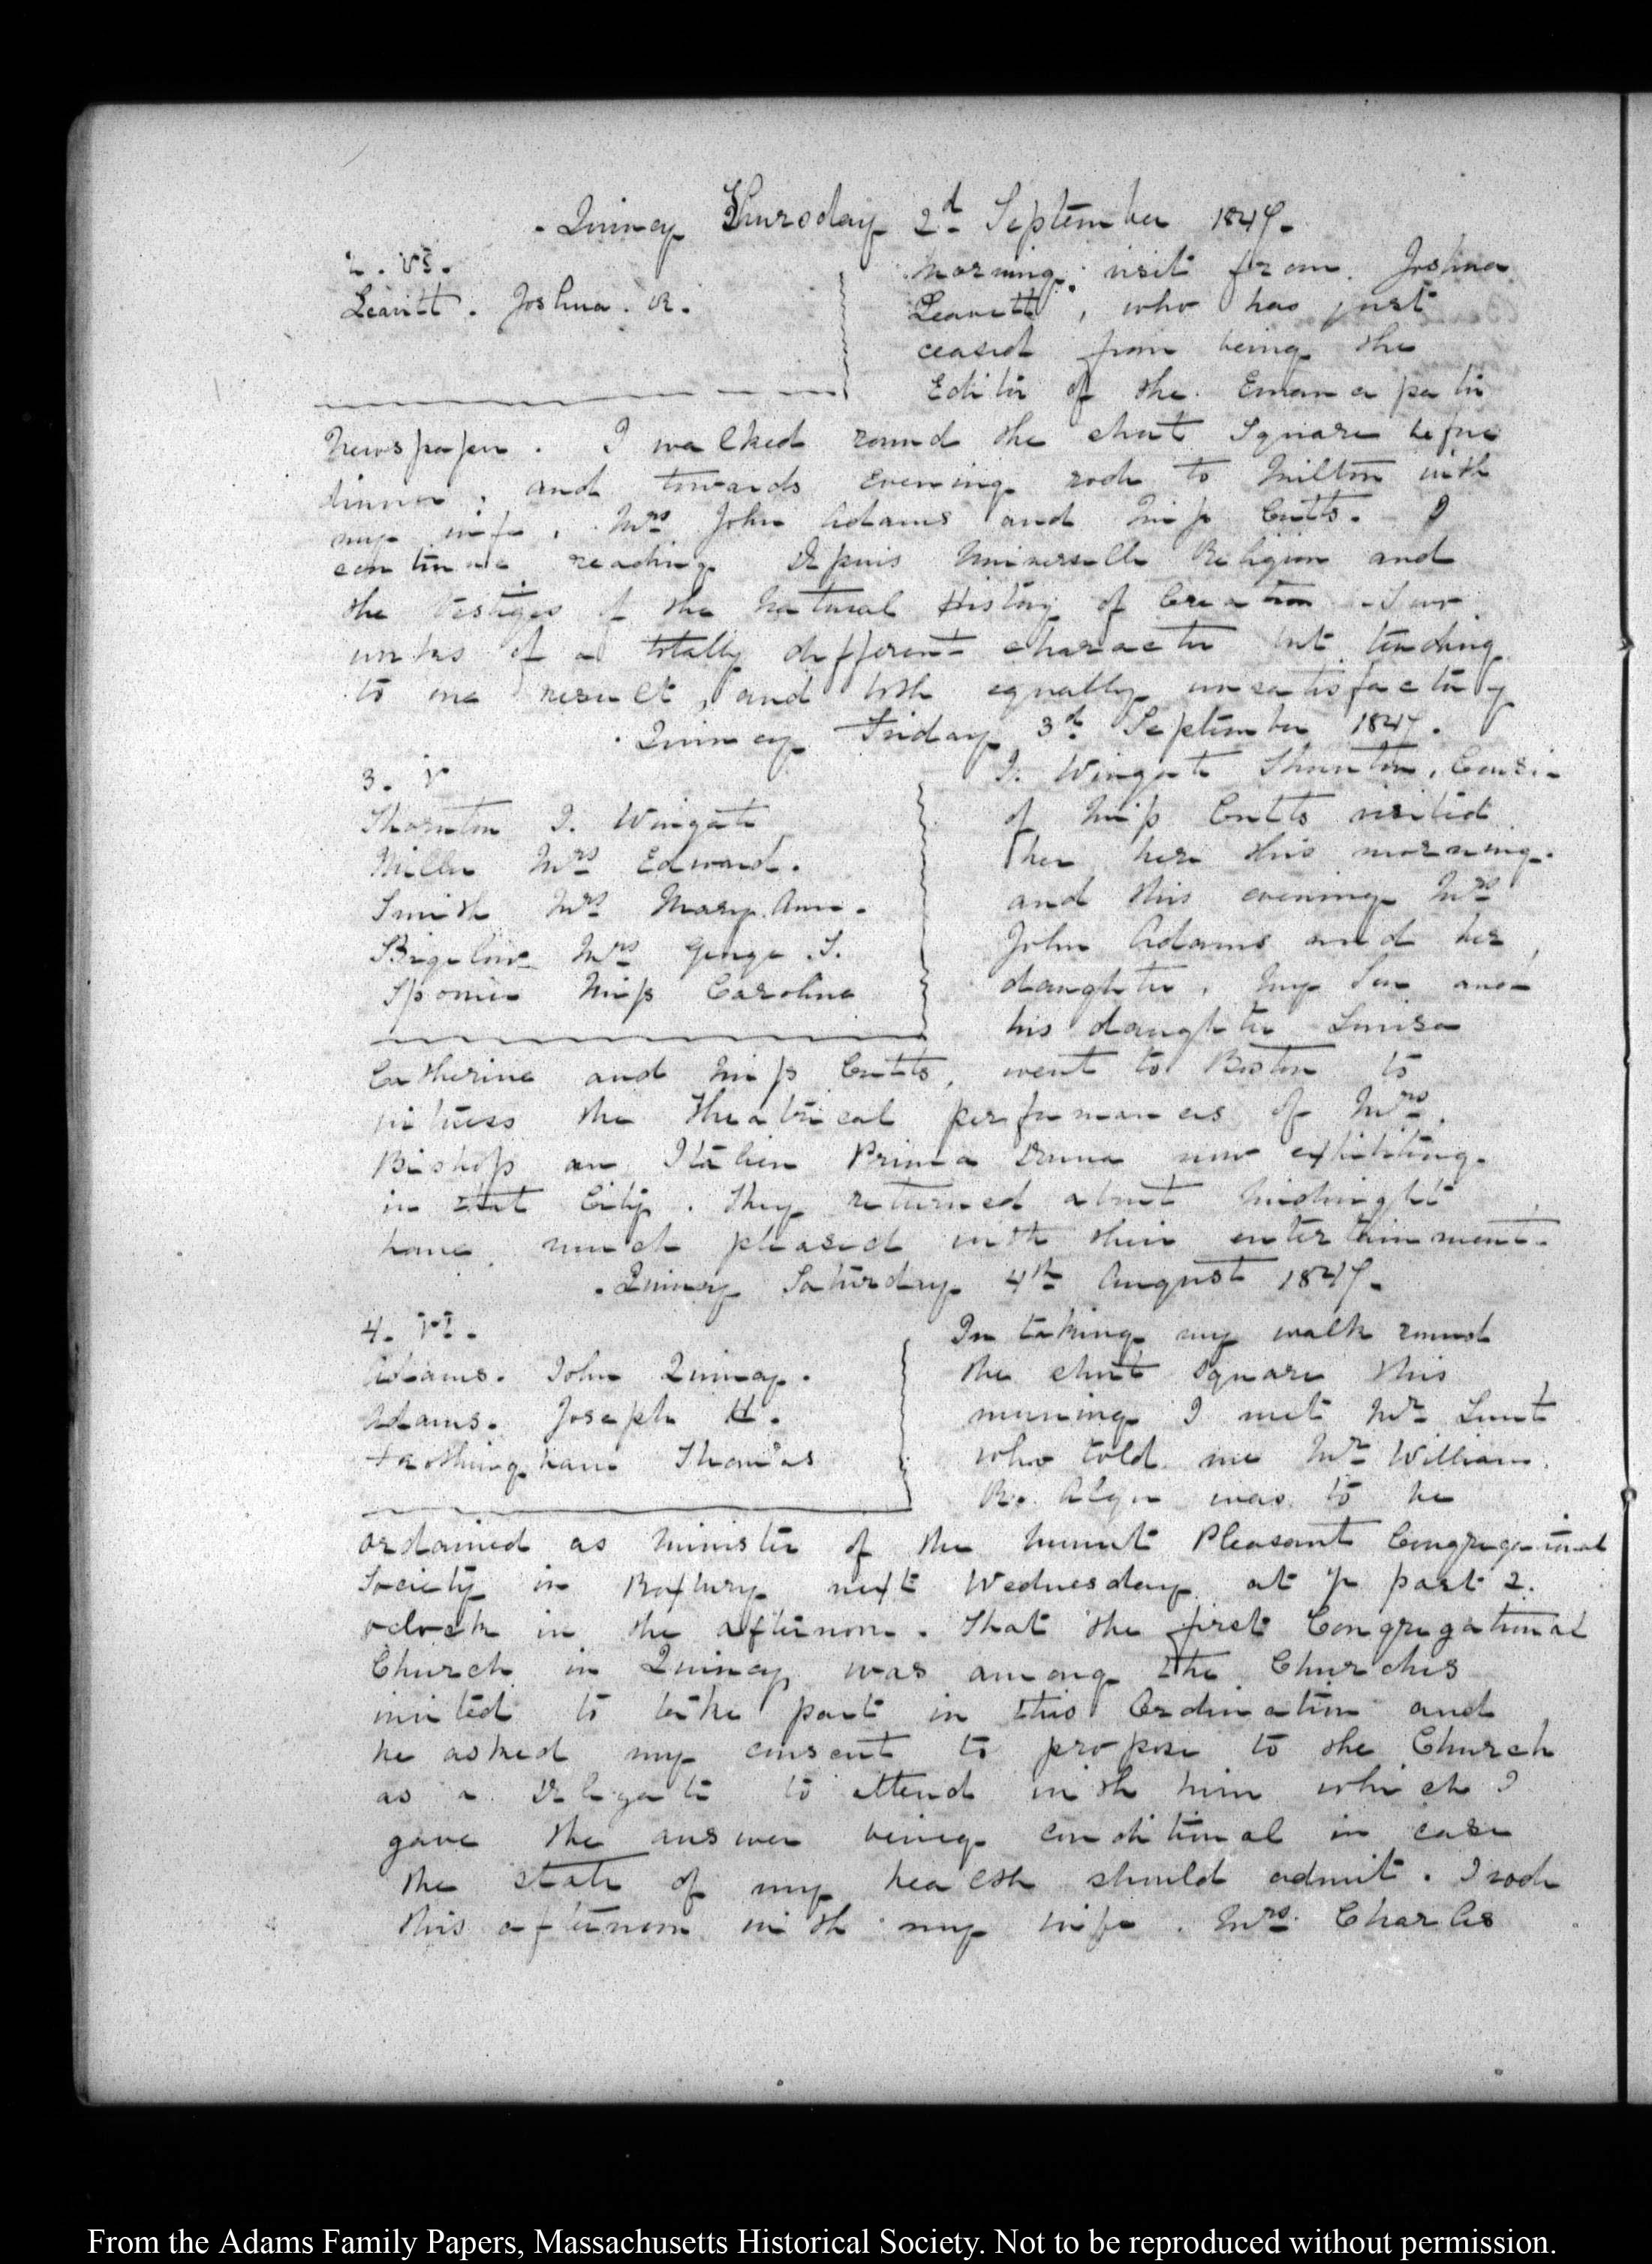 Quincy Thursday 2d September 1847.
2. V:
Leavitt. Joshua. R.
morning visit from. Joshua
Leavitt, who has just
ceased from being the
Editor of the Emancipator
Newspaper. I walked round the short Square before
dinner, and towards evening rode to Milton with
my wife, Mrs John Adams and Miss Cutts. I
continue reading Dupuis Universelle Religion and
the Vestiges of the Natural History of Creation
works of a totally different character but tending
to one result, and both equally unsatisfactory
Quincy Friday 3d September 1847.
3. V
Thornton J. Wingate
Miller Mrs Edward.
Smith Mrs Mary Ann.
Bigelow Mrs George T.
Miss Caroline
J. Wingate Thornton, Cousin
of Miss Cutts visited
her here this morning.
and this evening Mrs
John Adams and her
daughter, my Son and
his daughter Louisa
Catherine and Miss Cutts, went to Boston to
witness the theatrical performances of Mrs.
Bishop an Italian Prima Donna now exhibiting
in that City. They returned about midnight
home much pleased with their entertainment.
Quincy Saturday 4th August 1847.
4. VI.
Adams. John Quincy.
Adams. Joseph H.
Frothingham Thomas
In taking my walk round
the short square this
morning I met Mr Lunt
who told me Mr William.
R. Alger was to be
ordained as Minister of the Mount Pleasant Congregational
Society in Roxbury next Wednesday at 1/2 past 2.
oclock in the afternoon. That the first Congregational
Church in Quincy was among the Churches
invited to take part in this Ordination and
he asked my consent to propose to the Church
as a Delegate to attend with him which I
gave the answer being conditional in case
the state of my health should admit. I rode
this afternoon with my wife. Mrs. Charles
From the Adams Family Papers, Massachusetts Historical Society. Not to be reproduced without permission.